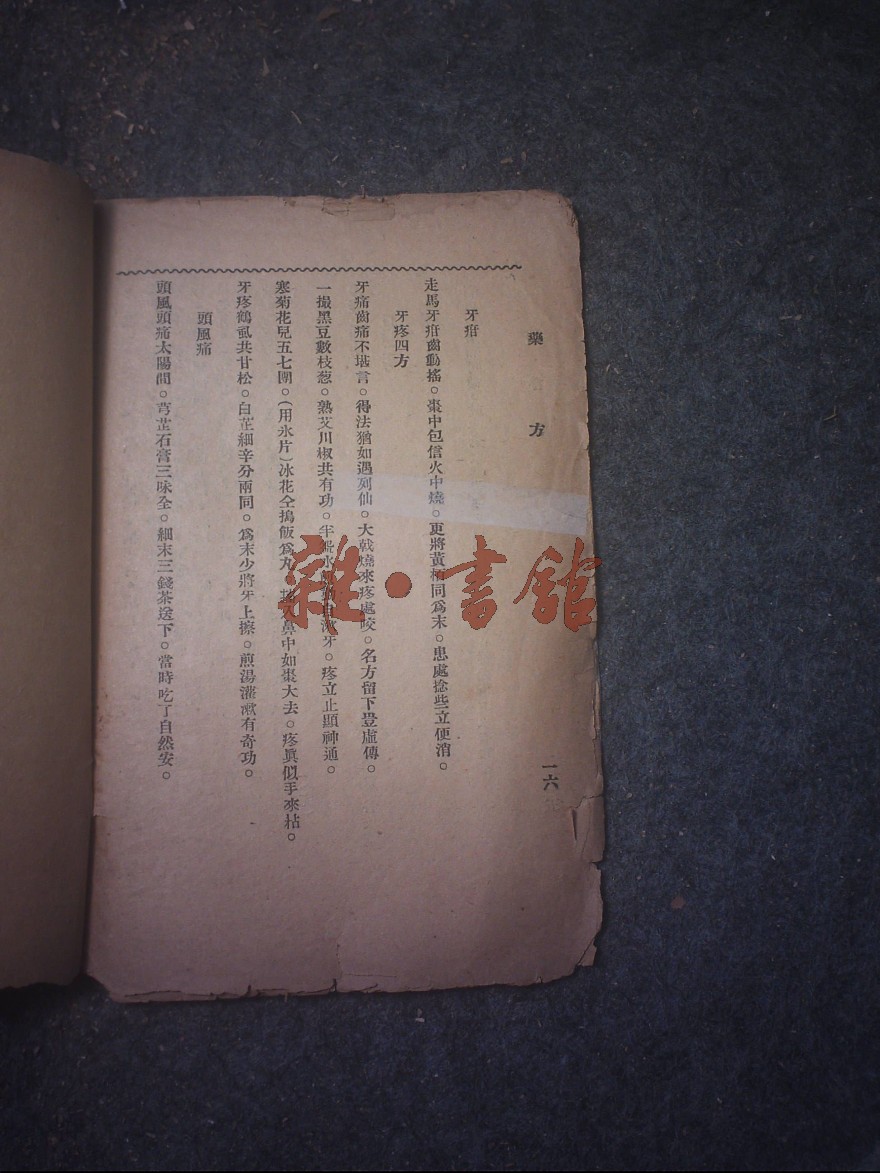 藥方
一六
牙疳
走馬牙疳齒動搖。棗中包信火中燒。更將黃栢同爲末。患處捻些立便消。
牙疼四方
牙痛齒痛不堪言。得法猶如遇列仙。大戟燒來疼處咬。名方留下豈虛傳。
一撮黑豆數枝葱。熟艾川椒共有功。半 水 牙。疼立止顯神通。
寒菊花兒五七團。(用氷片)冰花仝搗飯爲丸 鼻中如棗大去。疼眞似手來拈。
牙疼鶴虱共甘松。白芷細辛分兩同。爲末少將牙上擦。煎湯灌漱有奇功。
頭風痛
頭風頭痛太陽間。芎芷石膏三味全。細末三錢茶送下。當時吃了自然安。
雜・書館